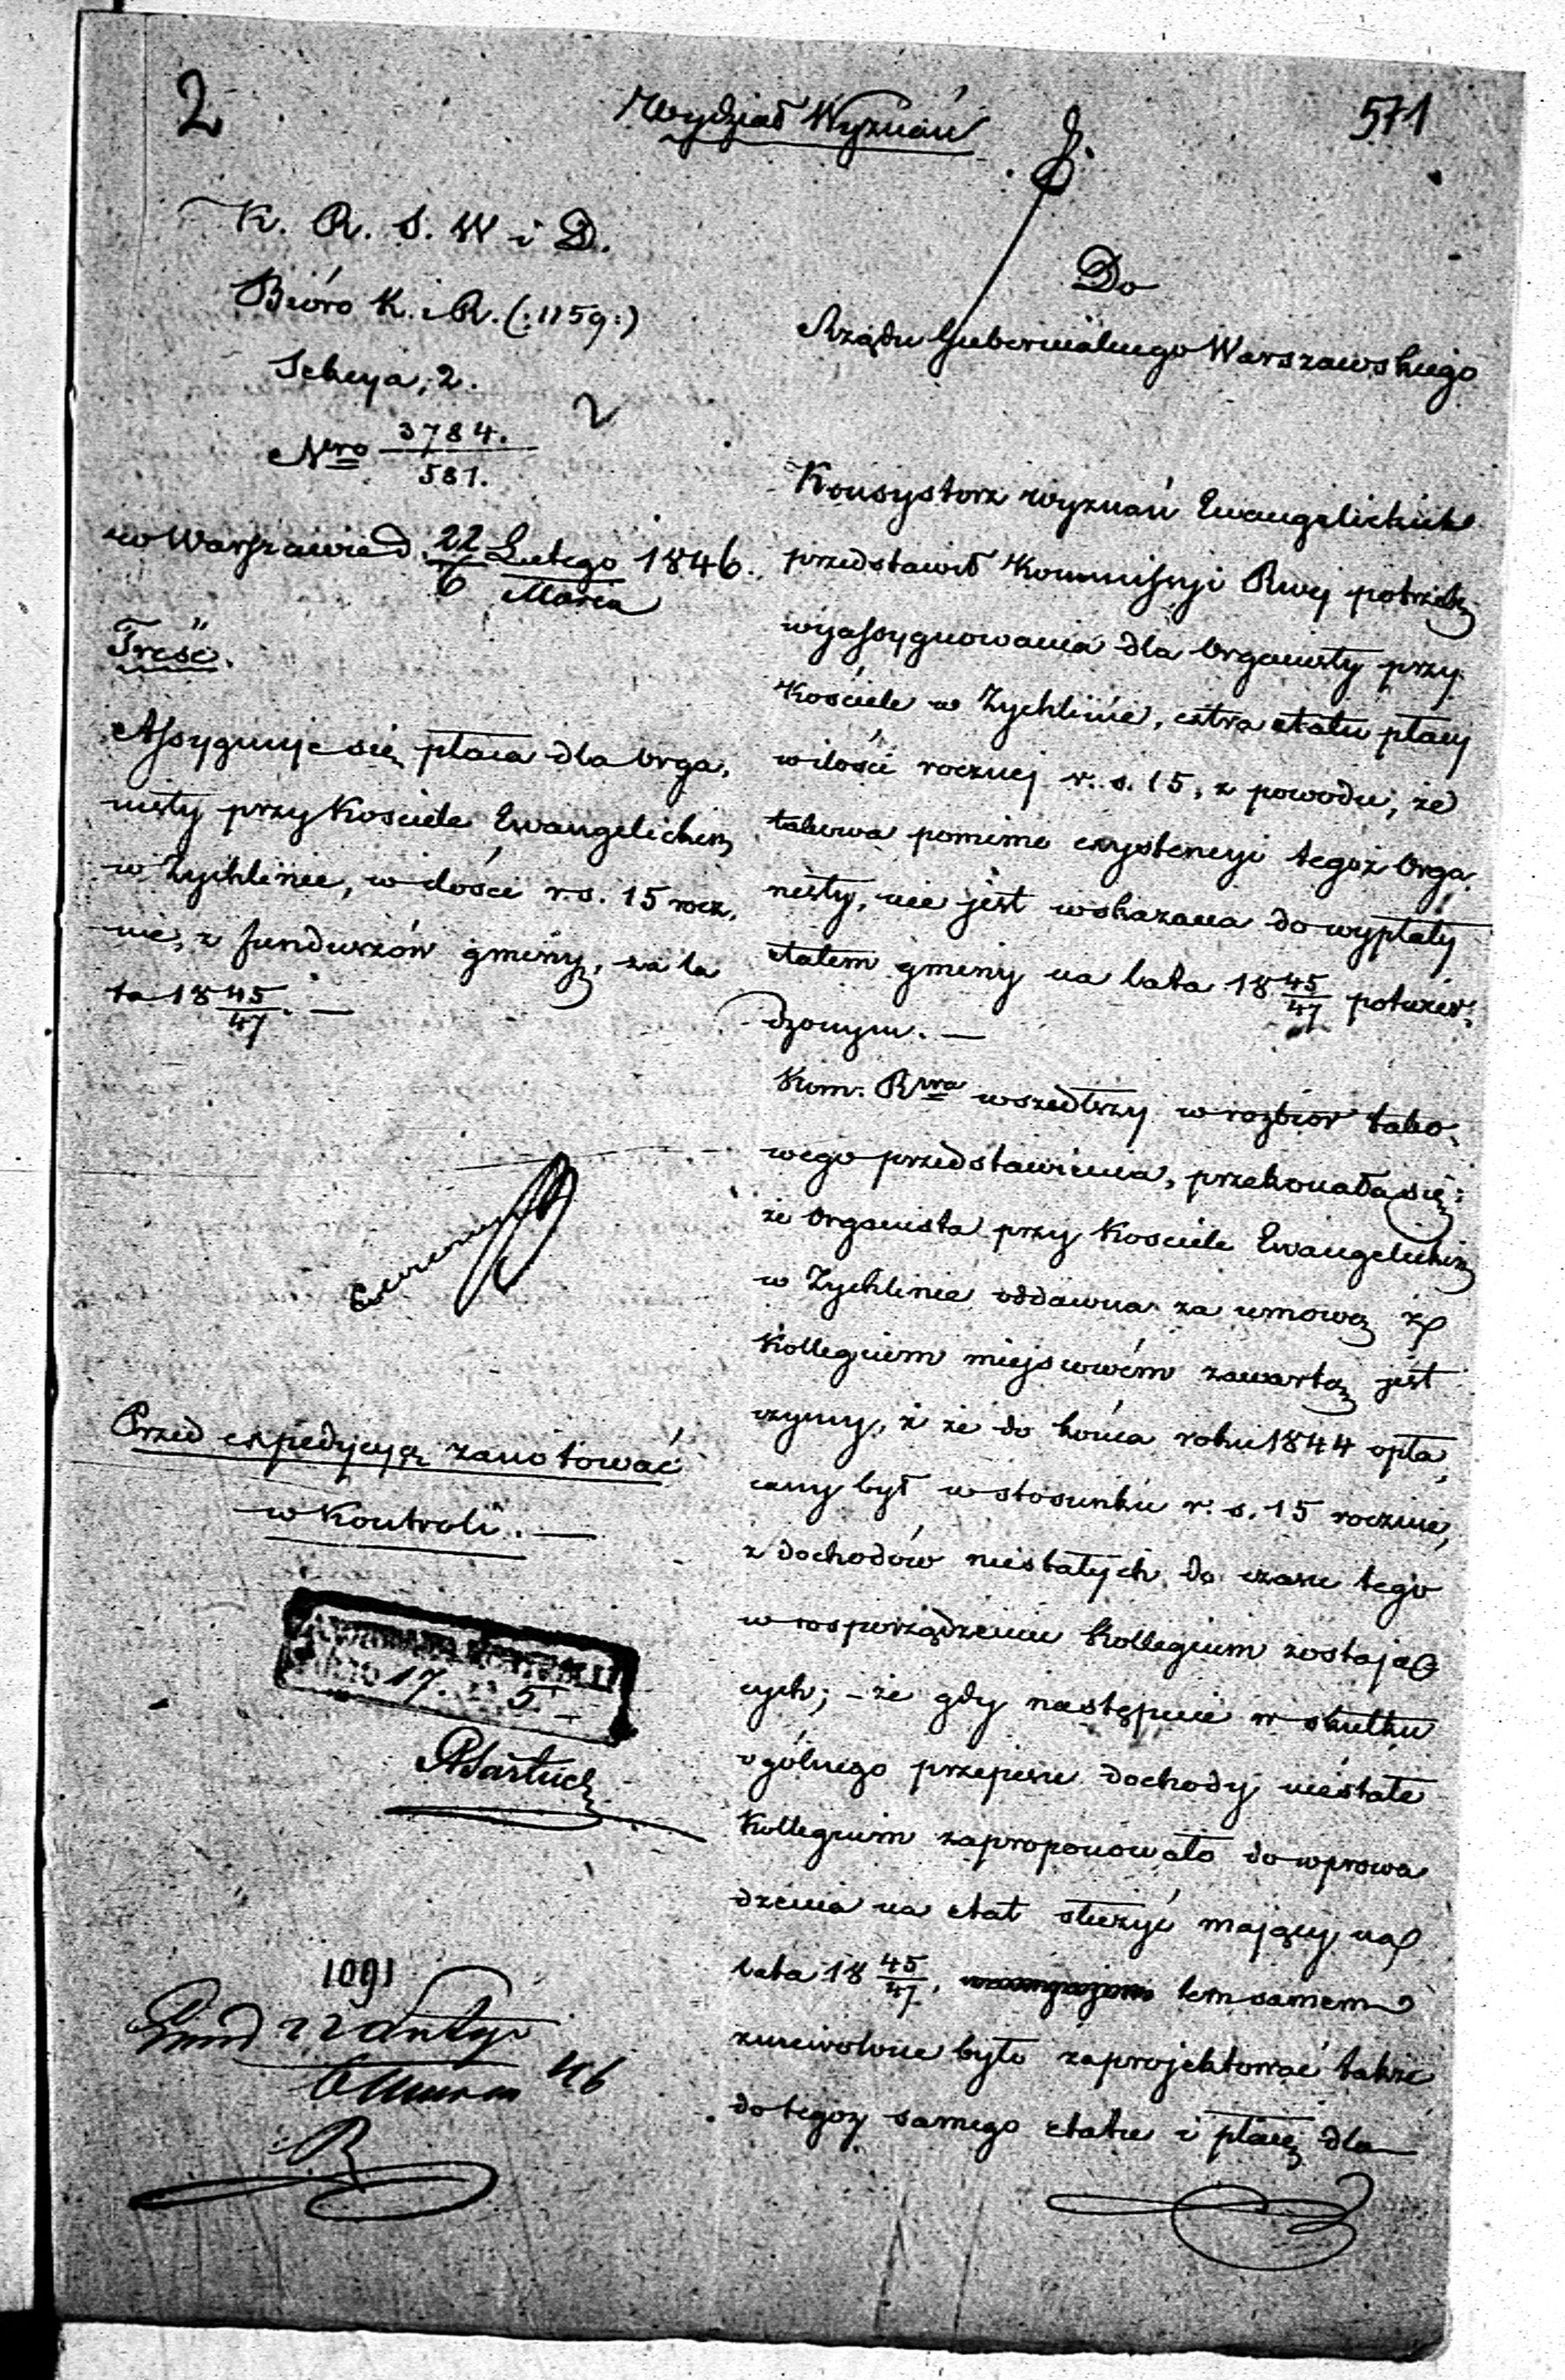 2
Wydział Wyznań
571
K. R. S. W i D.
Bióro K. i R. (:1159:)
Sekcya, 2.
2
Nro 3784.
581.
w Warszawie d. 22 Lutego 1846.
6 Marca
Treść.
Assygnuje się płaca dla Orga,
nisty przy Kościele Ewangelickim
w Zychlinie, w ilości r.s. 15 rocz,
nie, z funduszów gminy, za la
ta 18 45/47. —
Przed expedycyą zanotować
w Kontroli. —
17. 5
1091
46
Do
Rządu Gubernialnego Warszawskiego
Konsystorz wyznań Ewangelickich
przedstawił Kommissyi Rwej potrzebę
wyassygnowania dla Organisty przy
Kościele w Zychlinie, extra etatu płacy
w ilości rocznej r. s. 15, z powodu, że
takowa pomimo exystencyi tegoż Orga,
nisty, nie jest wskazana do wypłaty
etatem gminy na lata 18 45/47 potwier,
dzonym. —
Kom. Rwa wszedłszy w rozbiór tako,
wego przedstawienia, przekonała się:
że Organista przy Kościele Ewangelickim
w Zychlinie oddawna za umową z
Kollegium miejscowém zawartą jest
czynny, i że do końca roku 1844 opła,
cany był w stosunku r. s. 15 rocznie,
z dochodów niestałych do czasu tego
w rosporządzeniu Kollegium zostają
cych; – że gdy następnie w skutku
ogólnego przepisu dochody niestałe
Kollegium zaproponowało do wprowa
dzenia na etat służyć mający na
lata 18 45/47, tem samem
zniewolone było zaprojektować także
do tegoż samego etatu i płacę dla